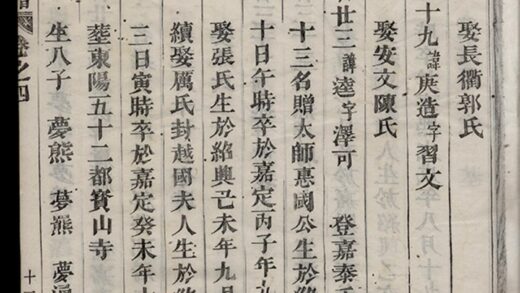 娶長衢郭氏
十九諱庚造字習文
娶安文陳氏
廿三諱逵字澤可 登嘉泰
十三名贈太師惠國公生於紹
十日午時卒於嘉定丙子年
娶張氏生於紹興己未年九月
續娶厲氏封越國夫人生於
三日寅時卒於嘉定癸未年
葬東陽五十二都寳山寺
生八子 夢熊 夢羆 夢
卷之四
十